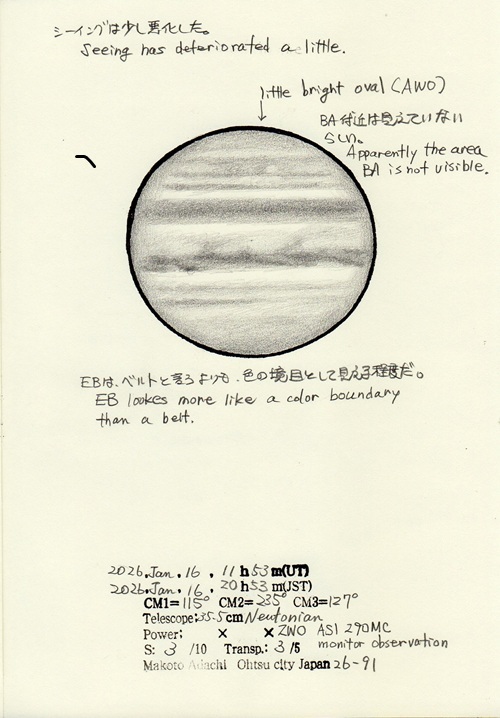 シーイングは少し悪化した。
Seeing has deteriorated a little.
little bright oval (AWO)
BA付近は見えていない
らしい。
Apparently the area
BA is not visible.
EBは、ベルトと言うよりも、色の境目として見える程度だ。
EB lookes more like a color boundary
than a belt.
2026.Jan.16, 11h53m(UT)
2026.Jan.16, 20h53m(JST)
CM1=115° CM2=235° CM3=127°
Telescope:35.5cm Neutonian
Power: × × ZWO ASI 290MC
S: 3 /10 Transp.: 3 /5 monitor observation
Makoto Adachi Ohtsu city Japan 26-91